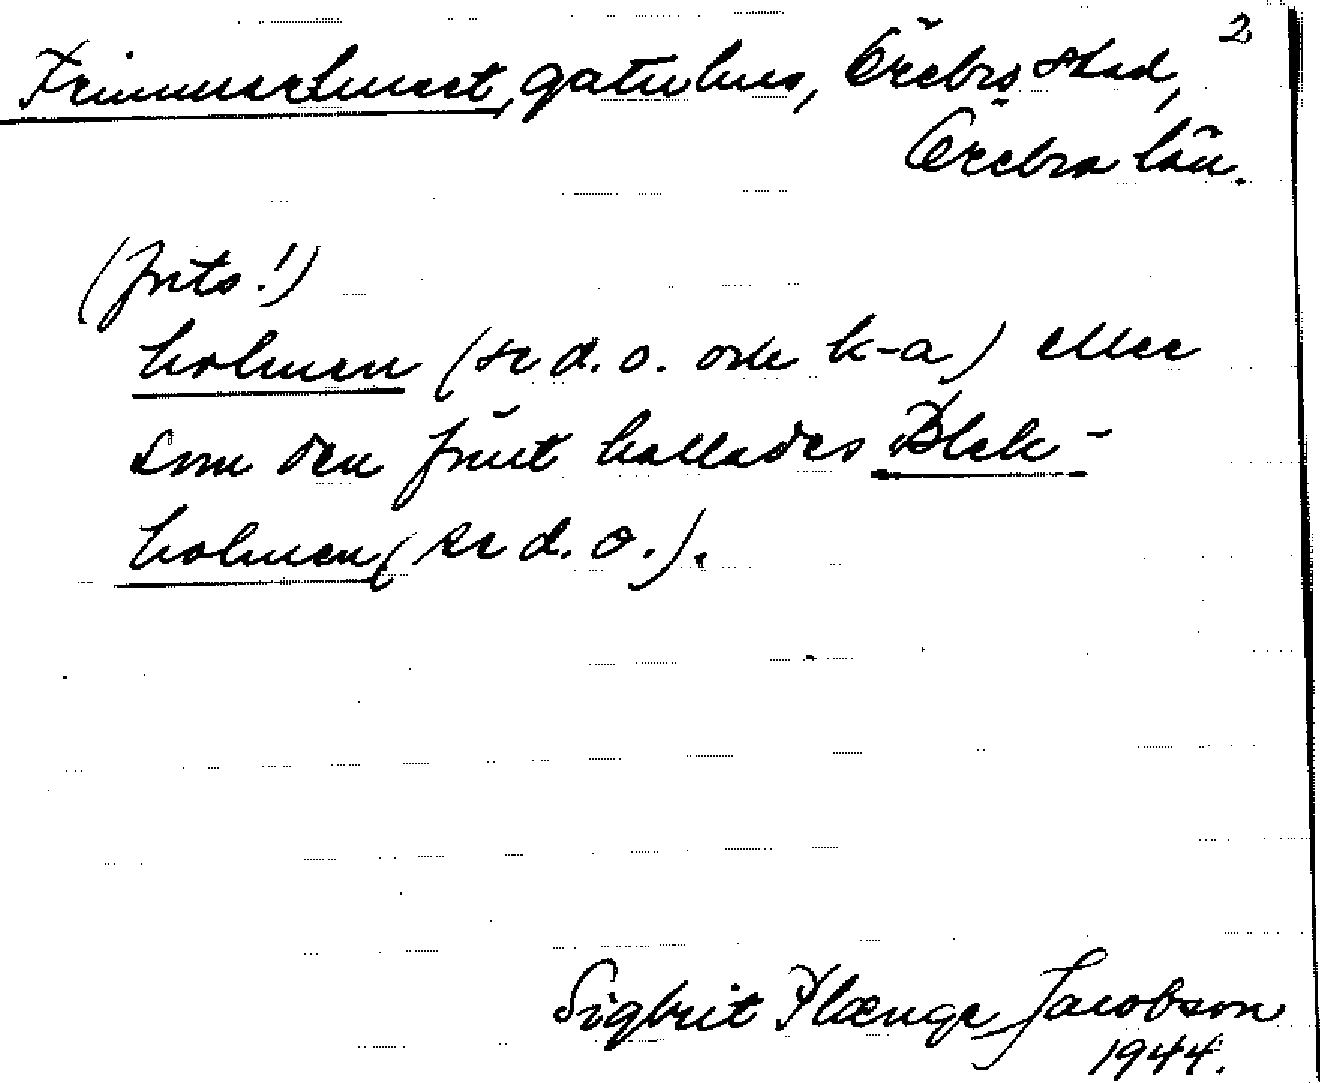 2
Frimurarhuset, gatuhus, Örebro stad,
Örebro län.
(forts!)
holmen (se d.o. och k-a) eller
som den förut kallades Blek-
holmen (se d.o.).
Sigbrit Plænge Jacobson
1944.